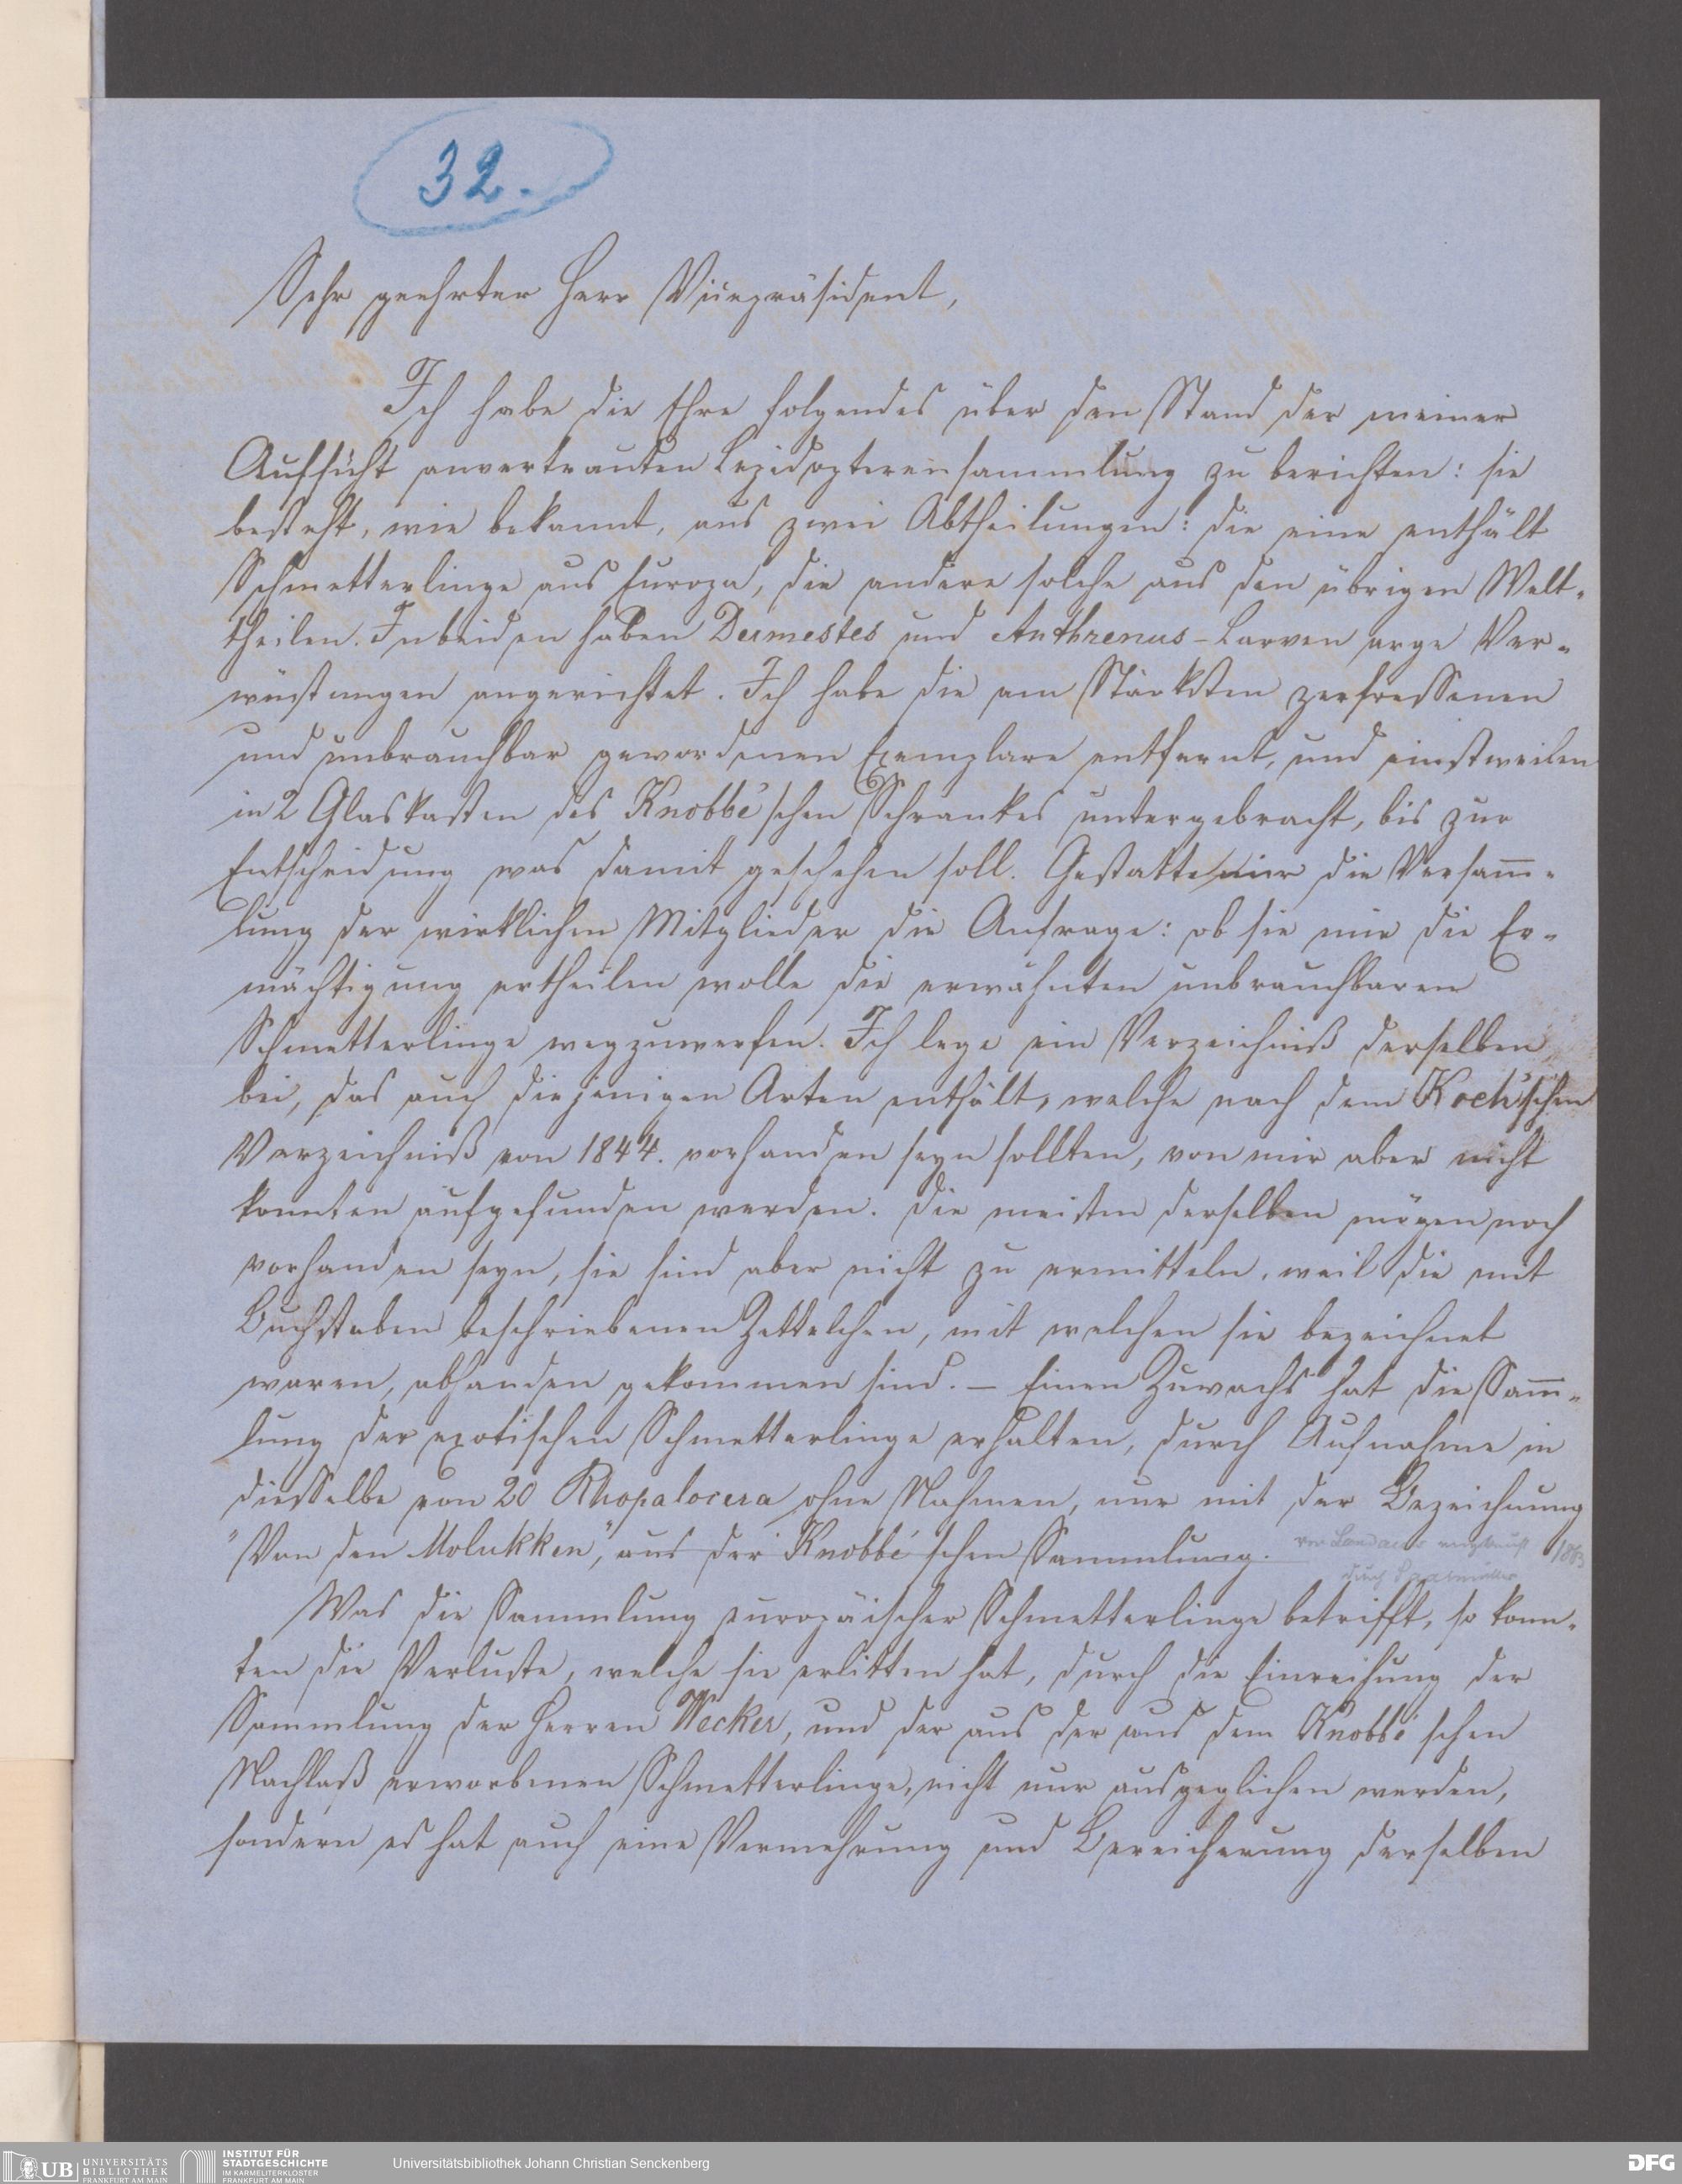 32.
Sehr geehrter Herr Vicepräsident,
Ich habe die Ehre folgendes über den Stand der meiner
Aufsicht anvertrauten Lepidopterensammlung zu berichten: sie
besteht, wie bekannt, aus zwei Abtheilungen: die eine enthält
Schmetterlinge aus Europa, die andere solche aus den übrigen Welt-
theilen. In beiden haben Dermestes und Anthrenus-Larven arge Ver-
wüstungen angerichtet. Ich habe die am Stärksten zerfressenen
und unbrauchbar gewordenen Exemplare entfernt, und einstweilen
in 2 Glaskasten des Knobbé'schen Schrankes untergebracht, bis zur
Entscheidung was damit geschehen soll. Gestatte mir die Versam̅-
lung der wirklichen Mitglieder die Anfrage: ob sie mir die Er-
mächtigung ertheilen wolle die erwähnten unbrauchbaren
Schmetterlinge wegzuwerfen. Ich lege ein Verzeichniß derselben
bei, das auch diejenigen Arten enthält, welche nach dem Koch'schen
Verzeichniß von 1844. vorhanden seyn sollten, von mir aber nicht
konnten aufgefunden werden. Die meisten derselben mögen noch
vorhanden seyn, sie sind aber nicht zu ermitteln, weil die mit
Buchstaben beschriebenen Zettelchen, mit welchen sie bezeichnet
waren, abhanden gekommen sind. – Einen Zuwachs hat die Sam̅-
lung der exotischen Schmetterlinge erhalten, durch Aufnahme in
dieselbe von 20 Rhopalocera ohne Nahmen, nur mit der Bezeichnung
"Von den Molukken", aus der Knobbé'schen Sammlung. von Landauer 1863
durch Saalmüller
Was die Sammlung europäischer Schmetterlinge betrifft, so konn-
ten die Verluste, welche sie erlitten hat, durch die Einreihung der
Sammlung der Herren Wecker, und der aus der aus dem Knobbé'schen
Nachlaß erworbenen Schmetterlinge, nicht nur ausgeglichen werden,
sondern es hat auch eine Vermehrung und Bereicherung derselben
UB UNIVERSITÄTS
BIBLIOTHEK
FRANKFURT AM MAIN
INSTITUT FÜR
STADTGESCHICHTE
IM KARMELITERKLOSTER
FRANKFURT AM MAIN
Universitätsbibliothek Johann Christian Senckenberg
DFG